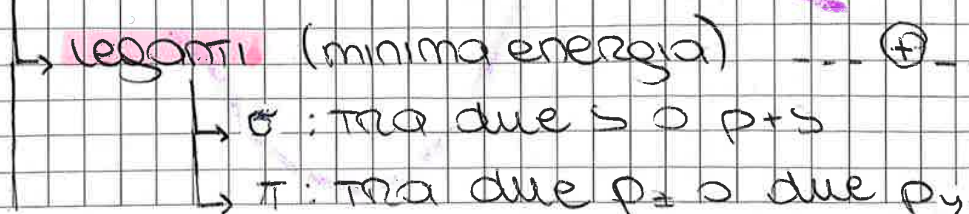 ↳ leganti (minima energia) --- ⊕ -
↳ σ : tra due s o p+s
↳ π : tra due pz o due py